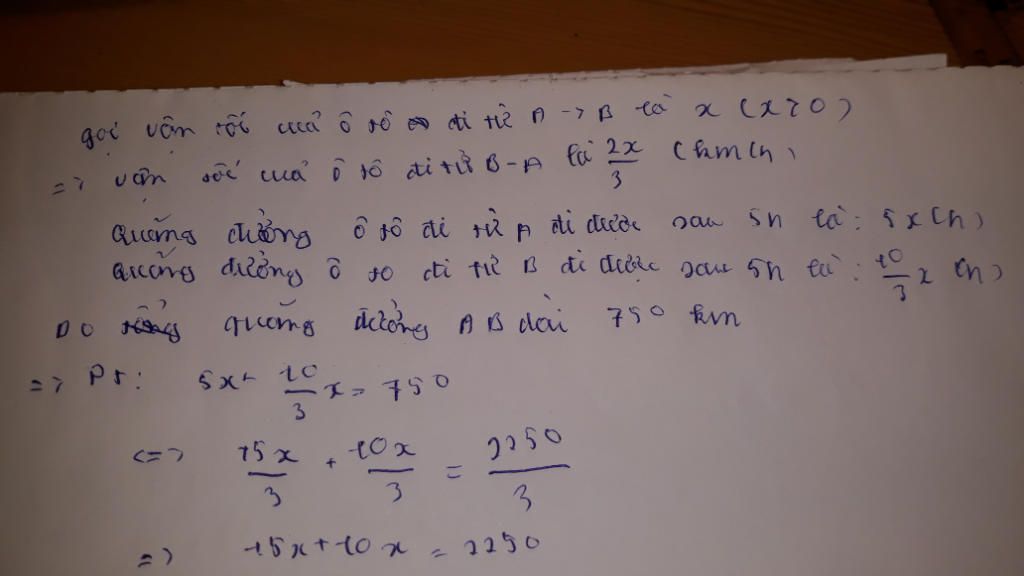 gọi vận tốc cuả ô tô đi từ A -> B là x (x > 0)
=> vận tốc cuả ô tô đi từ B - A là 2x/3 (km/h)
Quãng đường ô tô đi từ A đi được sau 5h là: 5x (h)
Quãng đường ô to đi từ B đi được sau 5h là: 10/3 x (h)
Do quãng đường AB dài 750 km
=> PT: 5x + 10/3 x = 750
<=> 15x/3 + 10x/3 = 2250/3
=> 15x + 10x = 2250